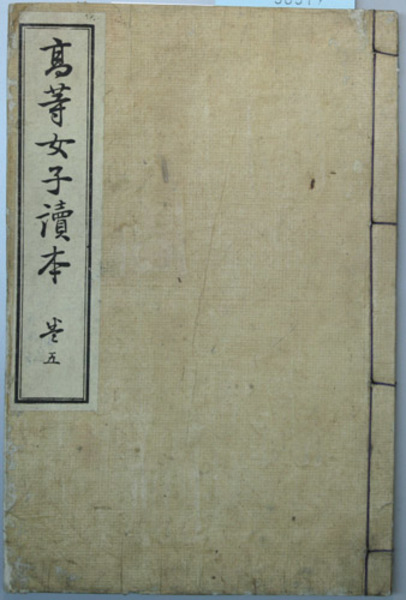 高等女子讀本
卷五